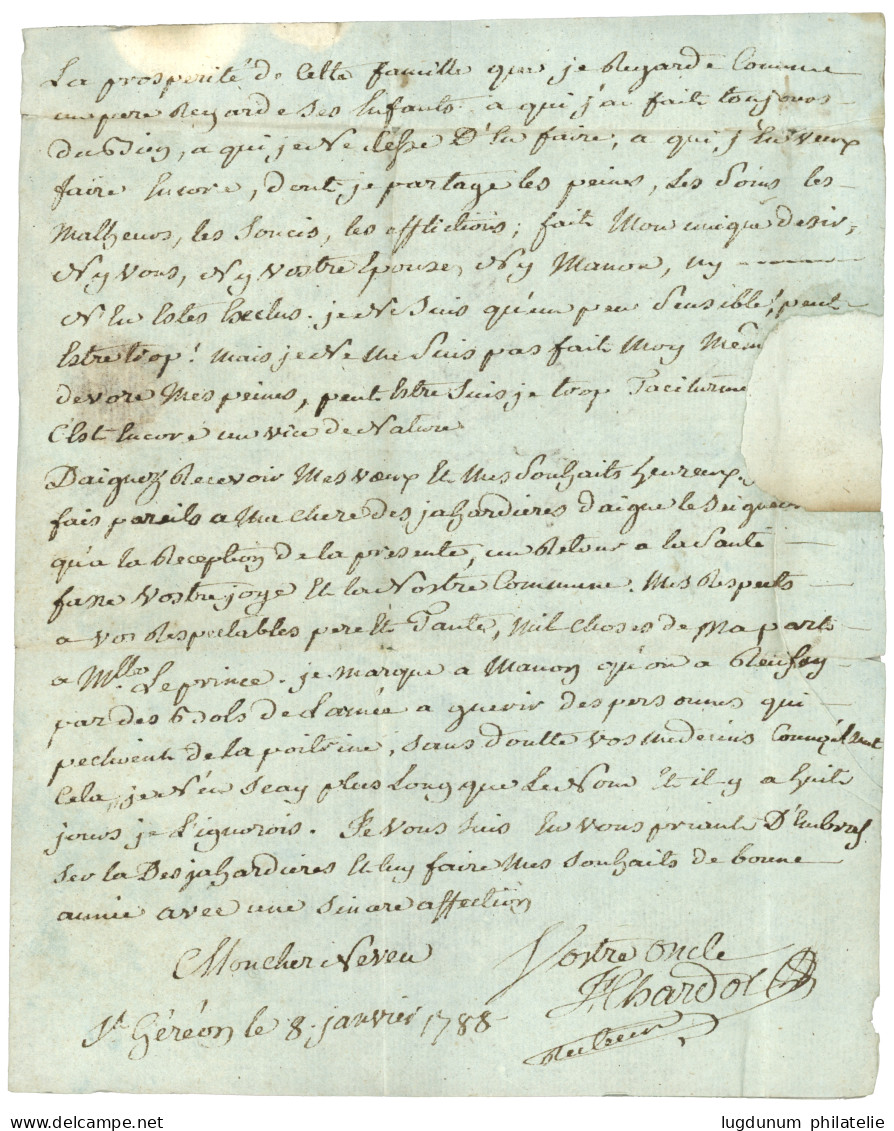 La prosperité de Cette famille que je Regarde Comme
un pere Regarde ses Enfants. a qui j'ai fait toujours
du Bien, a qui je Ne Cesse D'En faire, a qui j'En veux
faire Encore, dont je partage les peines, Les Soins les
Malheurs, les Soucis, les afflictions; fait Mon unique desir,
Ny Vous, Ny Vostre Epouse, Ny Manon, ny
N'En Estes Exclus. je Ne Suis qu'un peu Sensible! peut
Estre trop! Mais je Ne Me Suis pas fait Moy Mem
devore Mes peines, peut Estre Suis je trop Taciturne
C'est Encore un vice de Nature
Daignez Recevoir Mes Vœux Et Mes Souhaits heureux.
fais pareils a Ma Chere des jahardieres daigne le Seigneur
qu'a la Reception de la presente, un Retour a la Santé
fasse Vostre joye Et la Nostre Commune. Mes Respects
a Vos Respectables pere Et Tante, Mil Choses de Ma part
a Mlle Le prince. je marque a Manon qu'on a
par des Bols de a guerir des personnes qui
pechoient de la poitrine, Sans doutte Vos Medecins
Cela, je N'En Scay plus Long que Le Nom Et il y a huit
jours je L'ignorois. Je Vous Suis En Vous priant D'Embras
ser la Des jahardieres Et luy faire Mes Souhaits de bonne
année avec une Sincere affection
Mon cher Neveu Vostre Oncle
Chardot
St Géréon le 8. janvier 1788
lugdunum philatelie